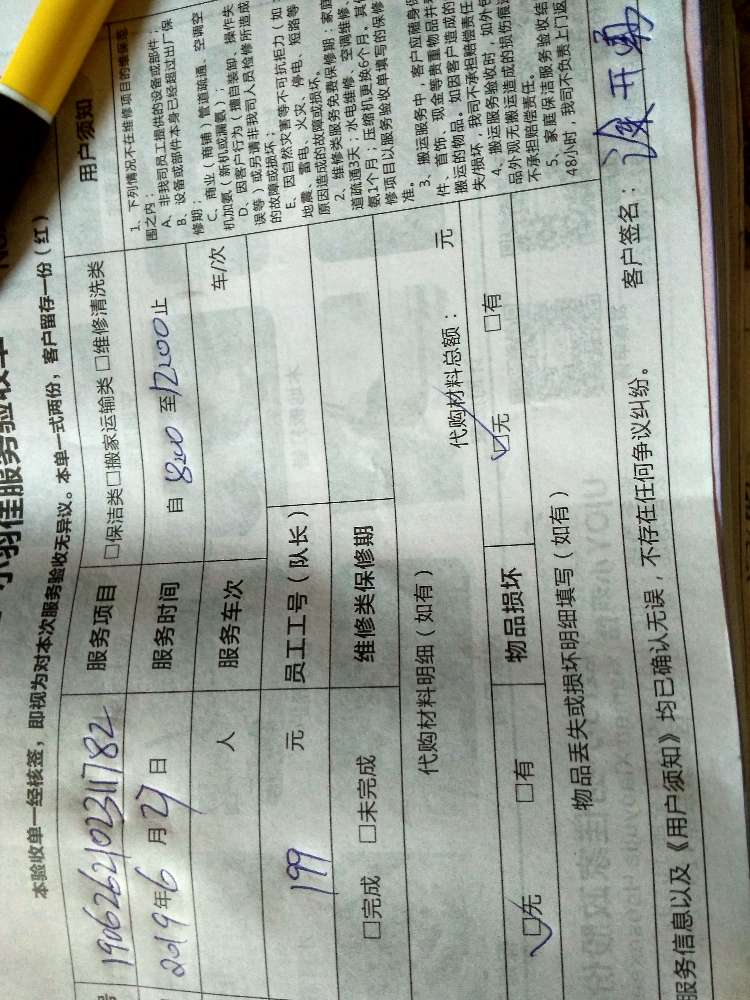 小羽佳服务验收单
本验收单一经核签，即视为对本次服务验收无异议。本单一式两份，客户留存一份（红）
19062621023111782 服务项目 □保洁类□搬家运输类 □维修清洗类
2019年6月27日 服务时间 自 8200 至 12200止
人 服务车次 车/次
199 元 员工工号（队长）
□完成 □未完成 维修类保修期
代购材料明细（如有） 代购材料总额： 元
☑无 □有 物品损坏 ☑无 □有
物品丢失或损坏明细填写（如有）
用户须知
1、下列情况不在维修项目的维保范
围之内：
A、非我司员工提供的设备或部件；
B、设备或部件本身已经超过出厂保
修期；
C、商业（商铺）管道疏通、空调空
机加氨（新机或漏氨）；
D、因客户行为（擅自装卸、操作失
误等）或另请非我司人员检修所造成
的故障或损坏；
E、因自然灾害等不可抗拒力（如
地震、雷电、火灾、停电、短路等
原因造成的故障或损坏。
2、维修类服务免费保修期：家庭
道疏通3天；水电维修、空调维修、
氨1个月；压缩机更换6个月。其
修项目以服务验收单填写的保修
准。
3、搬运服务中，客户应随身
件、首饰、现金等贵重物品并
搬运的物品。如因客户造成的
失/损坏，我司不承担赔偿责任
4、搬运服务验收时，如外包
品外观无搬运造成的损伤痕
不承担赔偿责任。
5、家庭保洁服务验收结
48小时，我司不负责上门返
服务信息以及《用户须知》均已确认无误，不存在任何争议纠纷。 客户签名：